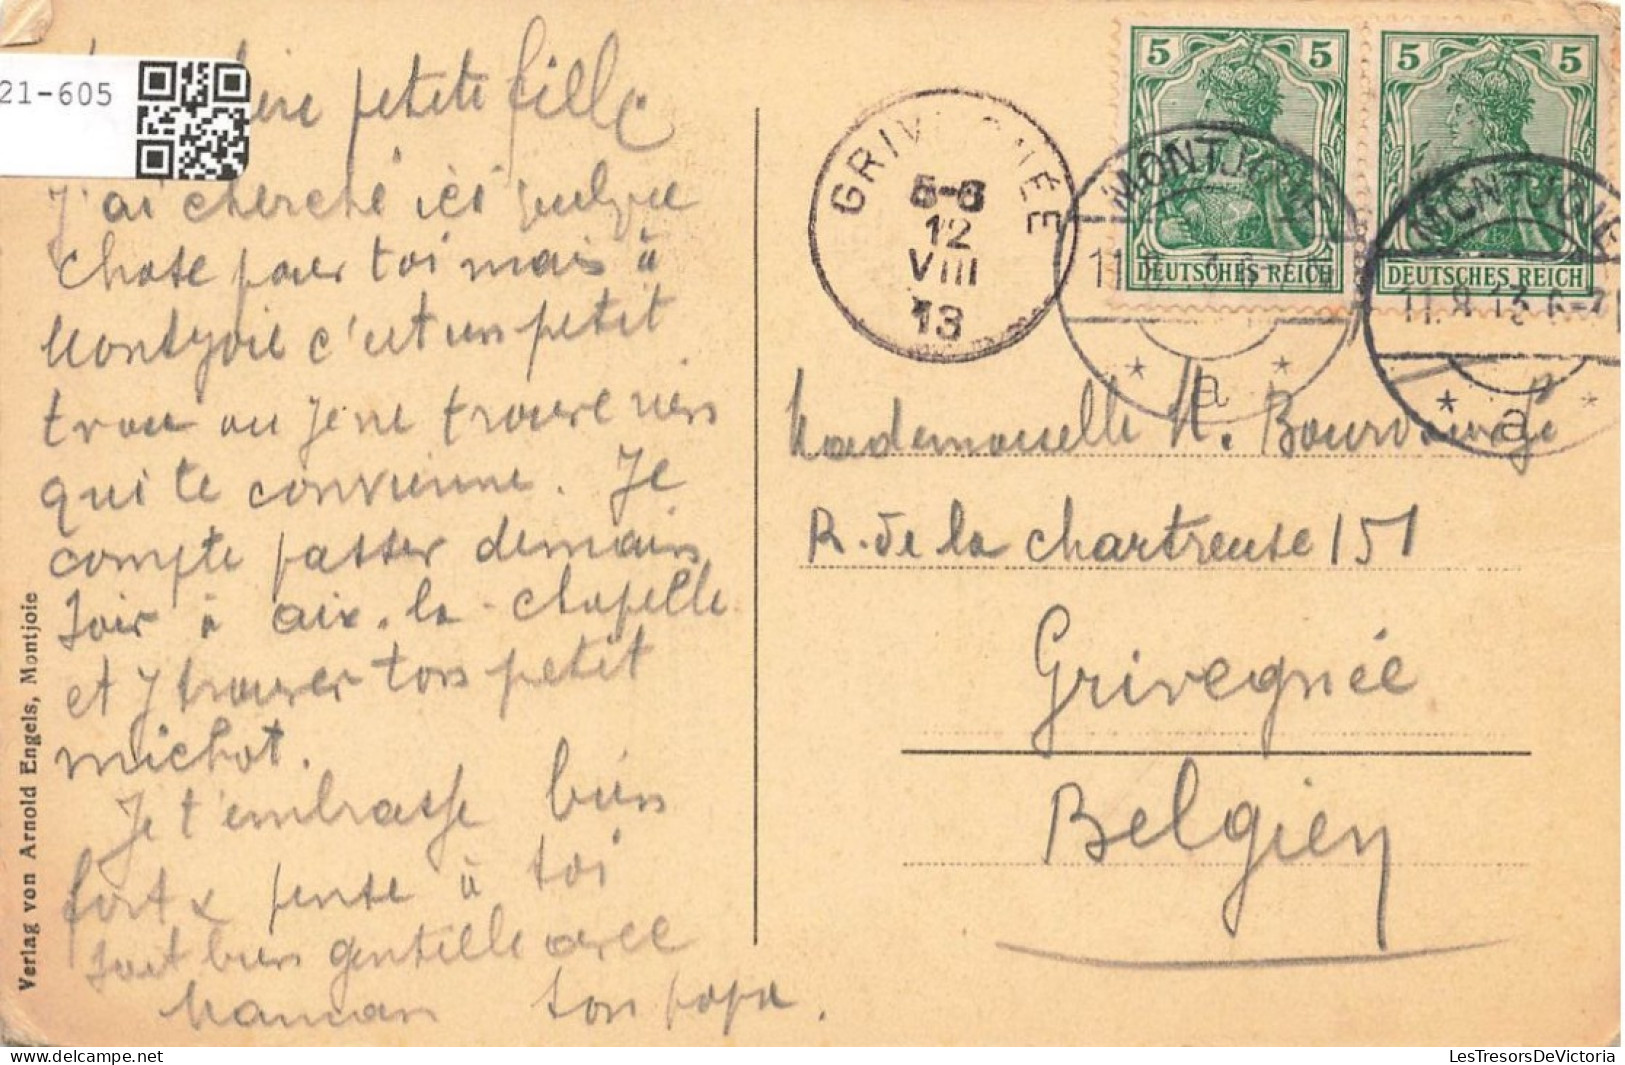 21-605
petite fille
J'ai cherché ici quelque
chose pour toi mais à
Montjoie c'est un petit
trou ou je ne trouve rien
qui te convienne. Je
compte passer demain
soir à aix-la-chapelle
et y trouver ton petit
michot.
Je t'embrasse bien
fort & pense à toi
soit bien gentille avec
Maman ton papa.
Verlag von Arnold Engels, Montjoie
GRIVEGNÉE
5-6
12
VIII
13
5 5
DEUTSCHES REICH
5 5
DEUTSCHES REICH
MONTJOIE
a
MONTJOIE
11.8.13 6-7
a
Mademoiselle
R. de la chartreuse 151
Grivegnée
Belgien
LesTresorsDeVictoria